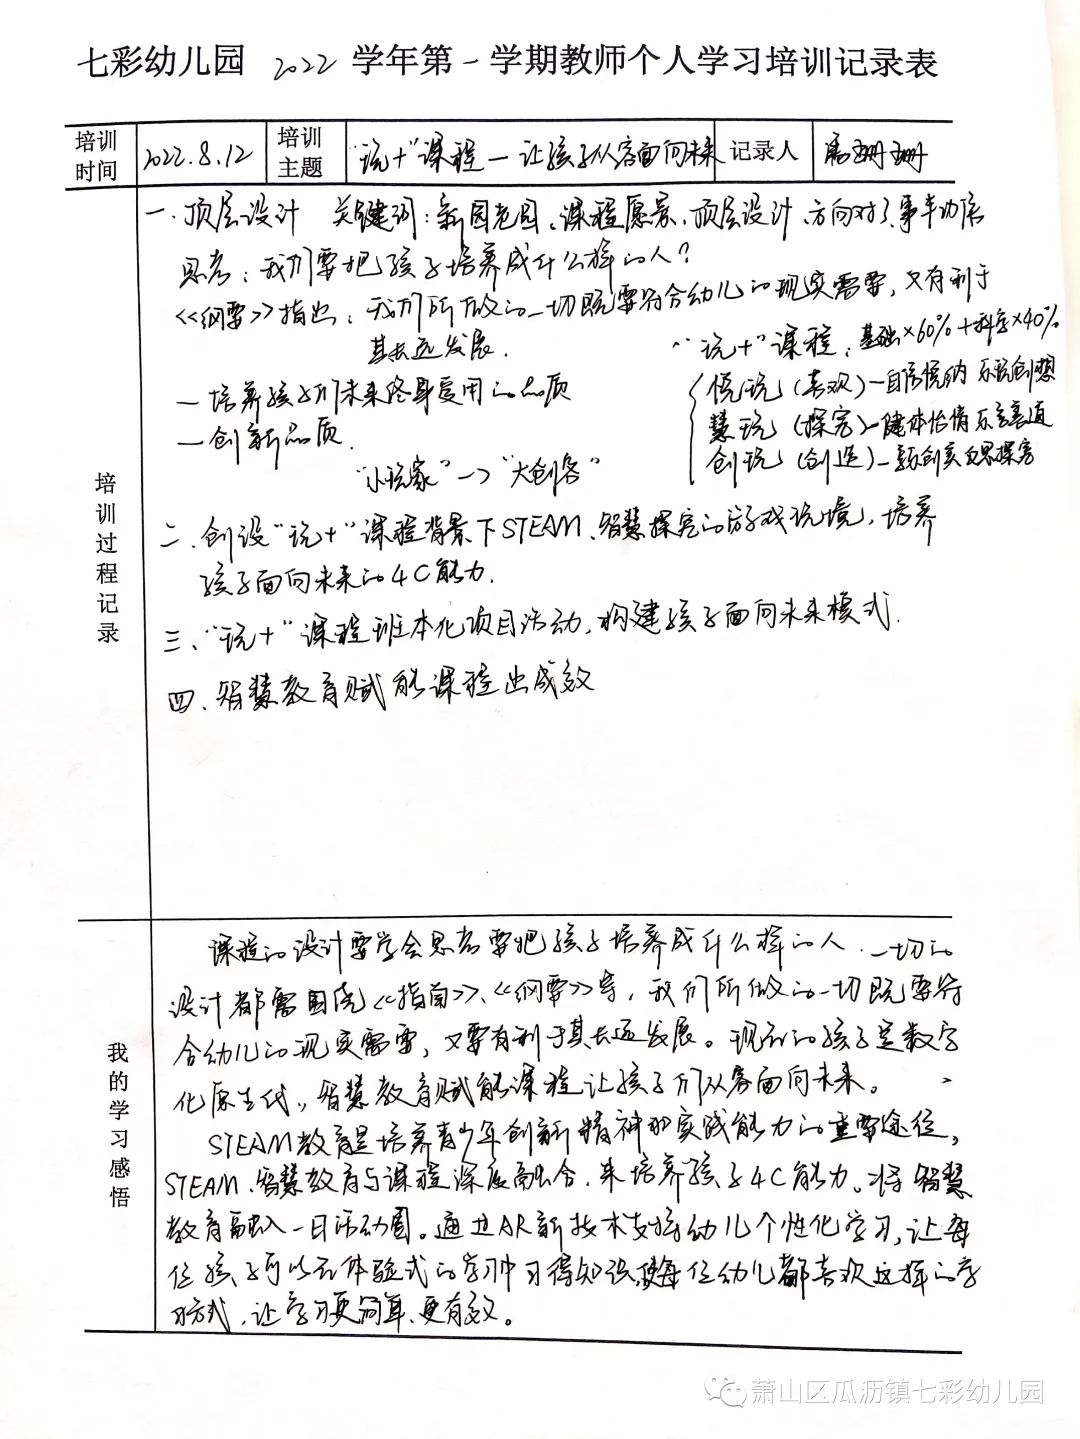 七彩幼儿园 2022 学年第一学期教师个人学习培训记录表
培训时间 2022.8.12 培训主题 “玩+”课程—让孩子从容面向未来 记录人 珊珊
培训过程记录
一.顶层设计 关键词:新园老园、课程愿景、顶层设计、方向对了,事半功倍
思考:我们要把孩子培养成什么样的人?
《纲要》指出:我们所做的一切既要符合幼儿的现实需要,又有利于
其长远发展.
“玩+”课程:基础×60%+×40%
—培养孩子们未来终身受用的品质
悦玩(喜欢)—自信悦纳 乐玩创想
—创新品质.
慧玩(探究)—健体怡情
创玩(创造)—探究
“小玩家”→“大创客”
二.创设“玩+”课程背景下STEAM、智慧探究的游戏玩境,培养
孩子面向未来的4C能力.
三、“玩+”课程班本化项目活动,构建孩子面向未来模式.
四.智慧教育赋能课程出成效
我的学习感悟
课程的设计要学会思考要把孩子培养成什么样的人.一切的
设计都需围绕《指南》、《纲要》等,我们所做的一切既要符
合幼儿的现实需要,又要有利于其长远发展。现在的孩子是数字
化原生代,智慧教育赋能课程让孩子们从容面向未来。
STEAM教育是培养青少年创新精神和实践能力的重要途径,
STEAM、智慧教育与课程深度融合.来培养孩子4C能力。将智慧
教育融入一日活动圈。通过AR新技术支持幼儿个性化学习,让每
位孩子可以在体验式的学习中习得知识,使每位幼儿都喜欢这样的学
习方式,让学习更简单、更有效。
萧山区瓜沥镇七彩幼儿园